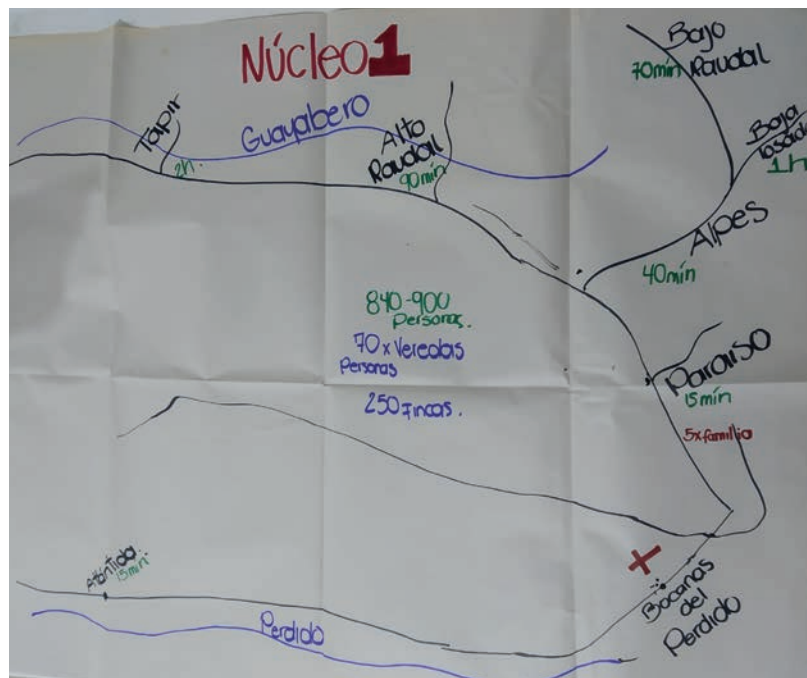 Núcleo 1
Bajo
Raudal
70min
Tapir
2h.
Guayabero
Alto
Raudal
90min
Baja
1h
Alpes
40min
840-900
Personas.
70 x Veredas
Personas
250 Fincas.
Paraiso
15min
5xfamilia
Atlántida
15min.
Perdido
Bocanas
del
Perdido